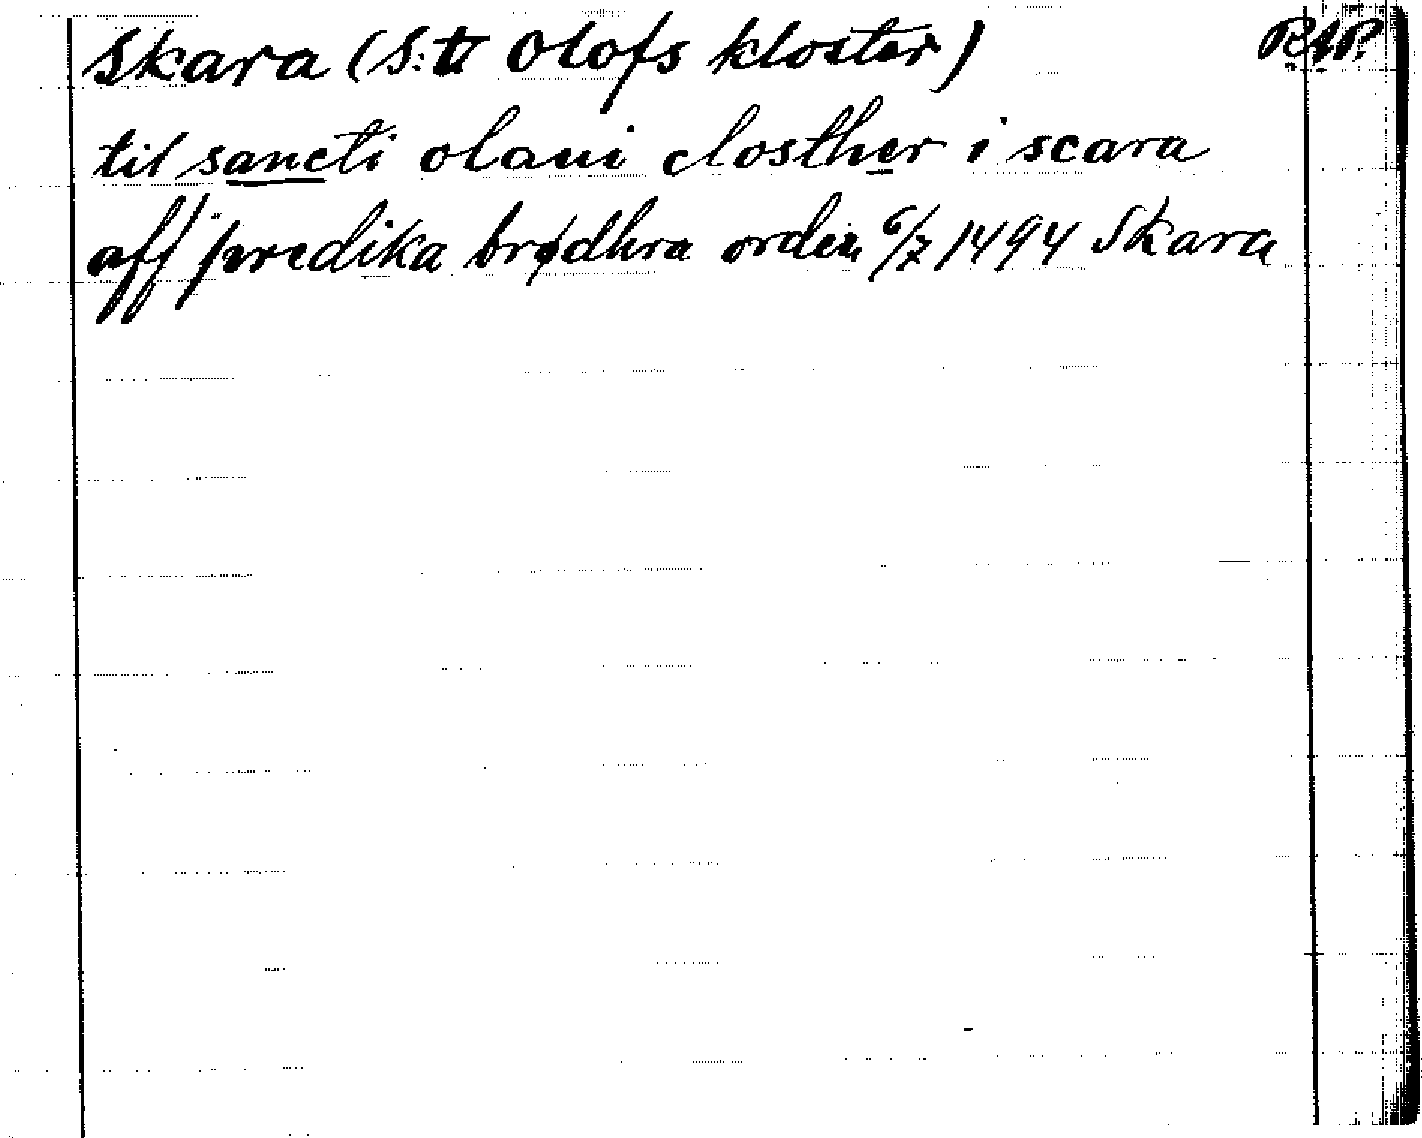 Skara (S:tt Olofs kloster) RAP.
til sancti olaui closther i scara
aff predika brødhra orden 6/7 1494 Skara